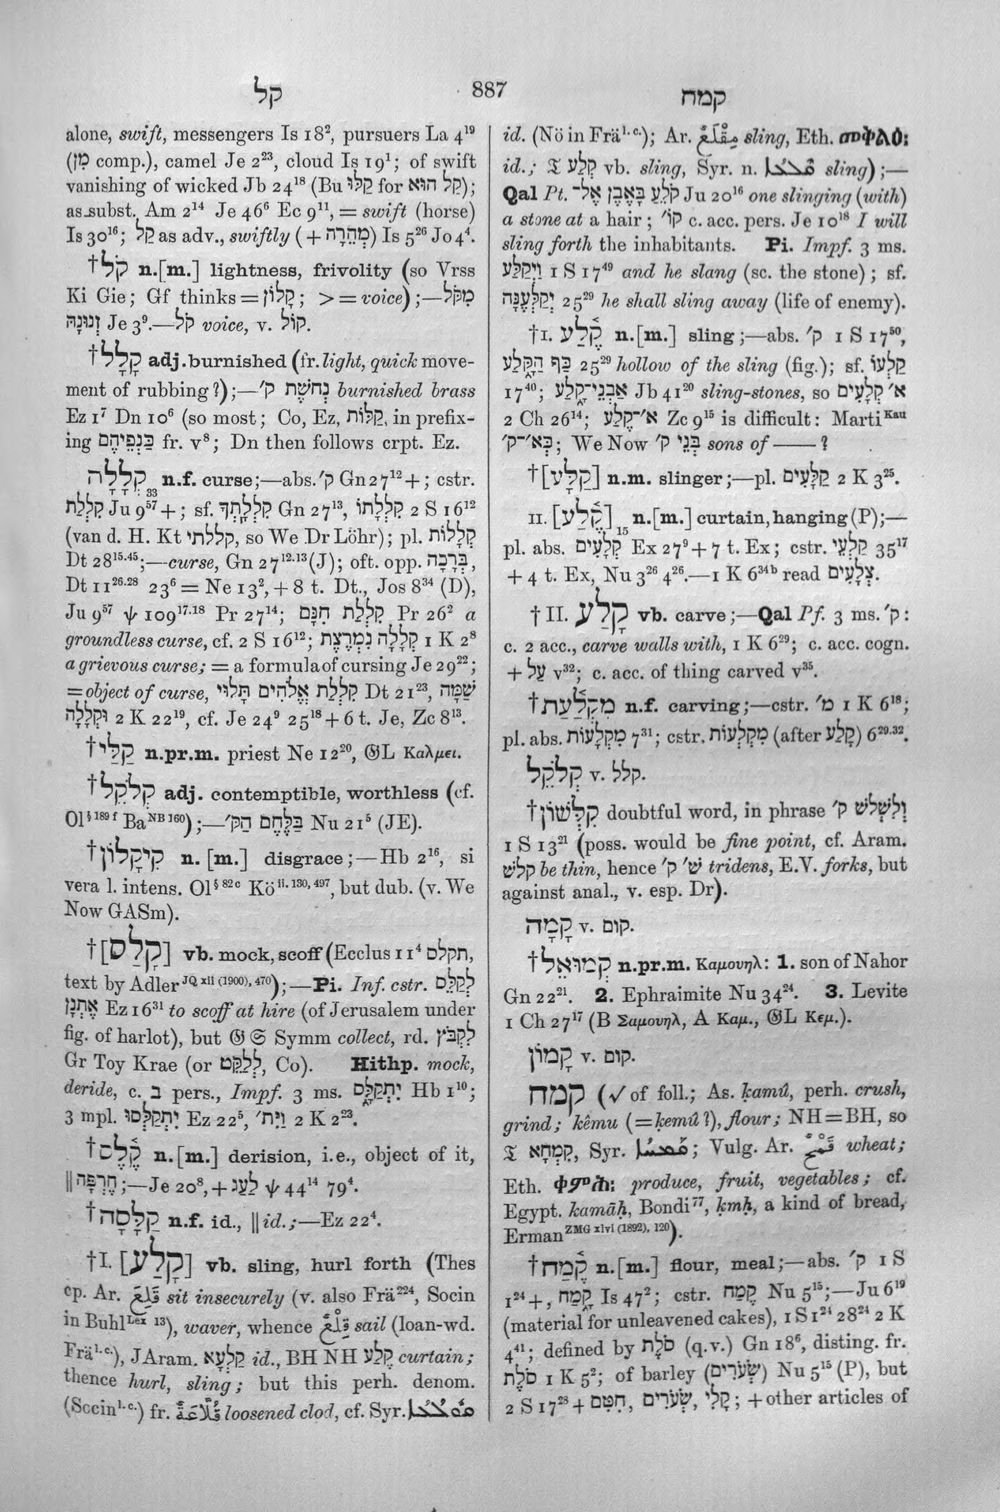 קל 887 קמח
alone, swift, messengers Is 18², pursuers La 4¹⁹
(מִן comp.), camel Je 2²³, cloud Is 19¹; of swift
vanishing of wicked Jb 24¹⁸ (Bu קַלּוּ for קַל הוּא);
as subst. Am 2¹⁴ Je 46⁶ Ec 9¹¹, = swift (horse)
Is 30¹⁶; קַל as adv., swiftly (+ מְהֵרָה) Is 5²⁶ Jo 4⁴.
†קֹל n.[m.] lightness, frivolity (so Vrss
Ki Gie; Gf thinks = קָלוֹן; > = voice);—מִקֹּל
זְנוּתָהּ Je 3⁹.—קֹל voice, v. קוֹל.
†קָלָל adj. burnished (fr. light, quick move-
ment of rubbing?);—נְחֹשֶׁת ק׳ burnished brass
Ez 1⁷ Dn 10⁶ (so most; Co, Ez, קַלּוֹת, in prefix-
ing כַּנְפֵיהֶם fr. v⁸; Dn then follows crpt. Ez.
קְלָלָה 33 n.f. curse;—abs. ק׳ Gn 27¹² +; cstr.
קִלְלַת Ju 9⁵⁷ +; sf. קִלְלָתְךָ Gn 27¹³, קִלְלָתוֹ 2 S 16¹²
(van d. H. Kt קללתי, so We Dr Löhr); pl. קְלָלוֹת
Dt 28¹⁵·⁴⁵;—curse, Gn 27¹²·¹³ (J); oft. opp. בְּרָכָה,
Dt 11²⁶·²⁸ 23⁶ = Ne 13², + 8 t. Dt., Jos 8³⁴ (D),
Ju 9⁵⁷ ψ 109¹⁷·¹⁸ Pr 27¹⁴; קִלְלַת חִנָּם Pr 26² a
groundless curse, cf. 2 S 16¹²; קְלָלָה נִמְרֶצֶת 1 K 2⁸
a grievous curse; = a formula of cursing Je 29²²;
= object of curse, קִלְלַת אֱלֹהִים תָּלוּי Dt 21²³, שַׁמָּה
וּקְלָלָה 2 K 22¹⁹, cf. Je 24⁹ 25¹⁸ + 6 t. Je, Zc 8¹³.
†קַלַּי n.pr.m. priest Ne 12²⁰, 𝔊L Καλμει.
†קְלֹקֵל adj. contemptible, worthless (cf.
Ol§ 189 f Ba NB 160);—בַּלֶּחֶם הַקּ׳ Nu 21⁵ (JE).
†קִיקָלוֹן n. [m.] disgrace;—Hb 2¹⁶, si
vera l. intens. Ol § 82 c Kö ii. 130, 497, but dub. (v. We
Now GASm).
†[קָלַס] vb. mock, scoff (Ecclus 11⁴ תקלס,
text by Adler JQ xii (1900), 470);—Pi. Inf. cstr. לְקַלֵּס
אֶתְנָן Ez 16³¹ to scoff at hire (of Jerusalem under
fig. of harlot), but 𝔊 𝔖 Symm collect, rd. לְקַבֵּץ
Gr Toy Krae (or לְלַקֵּט, Co). Hithp. mock,
deride, c. בְּ pers., Impf. 3 ms. יִתְקַלָּס Hb 1¹⁰;
3 mpl. יִתְקַלְּסוּ Ez 22⁵, וַיִּת׳ 2 K 2²³.
†קֶלֶס n.[m.] derision, i.e., object of it,
‖ חֶרְפָּה;—Je 20⁸, + לַעַג ψ 44¹⁴ 79⁴.
†קַלָּסָה n.f. id., ‖ id.;—Ez 22⁴.
†I. [קָלַע] vb. sling, hurl forth (Thes
cp. Ar. قَلِعَ sit insecurely (v. also Frä²²⁴, Socin
in Buhl Lex 13), waver, whence قِلْعٌ sail (loan-wd.
Frä l.c.), JAram. קִלְעָא id., BH NH קֶלַע curtain;
thence hurl, sling; but this perh. denom.
(Socin l.c.) fr. قُلَّاعَةٌ loosened clod, cf. Syr.
id. (Nö in Frä l.c.); Ar. مِقْلَعٌ sling, Eth. መቅልዕ:
id.; 𝔗 קְלַע vb. sling, Syr. n. sling);—
Qal Pt. קֹלֵעַ בָּאֶבֶן אֶל־ Ju 20¹⁶ one slinging (with)
a stone at a hair; קוֹ׳ c. acc. pers. Je 10¹⁸ I will
sling forth the inhabitants. Pi. Impf. 3 ms.
וַיְקַלַּע 1 S 17⁴⁹ and he slang (sc. the stone); sf.
יְקַלְּעֶנָּה 25²⁹ he shall sling away (life of enemy).
†I. קֶלַע n.[m.] sling;—abs. ק׳ 1 S 17⁵⁰,
כַּף הַקָּלַע 25²⁹ hollow of the sling (fig.); sf. קַלְעוֹ
17⁴⁰; אַבְנֵי־קָלַע Jb 41²⁰ sling-stones, so א׳ קְלָעִים
2 Ch 26¹⁴; א׳־קֶלַע Zc 9¹⁵ is difficult: Marti Kau
כְּא׳־ק׳; We Now בְּנֵי ק׳ sons of —— ?
†[קַלָּע] n.m. slinger;—pl. קַלָּעִים 2 K 3²⁵.
II. [קֶלַע] 15 n.[m.] curtain, hanging (P);—
pl. abs. קְלָעִים Ex 27⁹ + 7 t. Ex; cstr. קַלְעֵי 35¹⁷
+ 4 t. Ex, Nu 3²⁶ 4²⁶.—1 K 6³⁴ᵇ read צְלָעִים.
†II. קָלַע vb. carve;—Qal Pf. 3 ms. ק׳:
c. 2 acc., carve walls with, 1 K 6²⁹; c. acc. cogn.
+ עַל v³²; c. acc. of thing carved v³⁵.
†מִקְלַעַת n.f. carving;—cstr. מ׳ 1 K 6¹⁸;
pl. abs. מִקְלָעוֹת 7³¹; cstr. מִקְלְעוֹת (after קָלַע) 6²⁹·³².
קְלֹקֵל v. קלל.
†קִלְּשׁוֹן doubtful word, in phrase וְלִשְׁלֹשׁ ק׳
1 S 13²¹ (poss. would be fine point, cf. Aram.
קלשׁ be thin, hence שׁ׳ ק׳ tridens, E.V. forks, but
against anal., v. esp. Dr).
קָמָה v. קום.
†קְמוּאֵל n.pr.m. Καμουηλ: 1. son of Nahor
Gn 22²¹. 2. Ephraimite Nu 34²⁴. 3. Levite
1 Ch 27¹⁷ (B Σαμουηλ, A Καμ., 𝔊L Κεμ.).
קָמוֹן v. קום.
קמח (√ of foll.; As. ḳamû, perh. crush,
grind; ḳêmu (= ḳemû?), flour; NH = BH, so
𝔗 קִמְחָא, Syr. ; Vulg. Ar. قَمْحٌ wheat;
Eth. ቀምሕ: produce, fruit, vegetables; cf.
Egypt. ḳamāḥ, Bondi⁷⁷, ḳmḥ, a kind of bread,
Erman ZMG xlvi (1892), 120).
†קֶמַח n.[m.] flour, meal;—abs. ק׳ 1 S
1²⁴ +, קָמַח Is 47²; cstr. קֶמַח Nu 5¹⁵;—Ju 6¹⁹
(material for unleavened cakes), 1 S 1²⁴ 28²⁴ 2 K
4⁴¹; defined by סֹלֶת (q.v.) Gn 18⁶, disting. fr.
סֹלֶת 1 K 5²; of barley (שְׂעֹרִים) Nu 5¹⁵ (P), but
2 S 17²⁸ + קָלִי, שְׂעֹרִים, חִטִּם; + other articles of